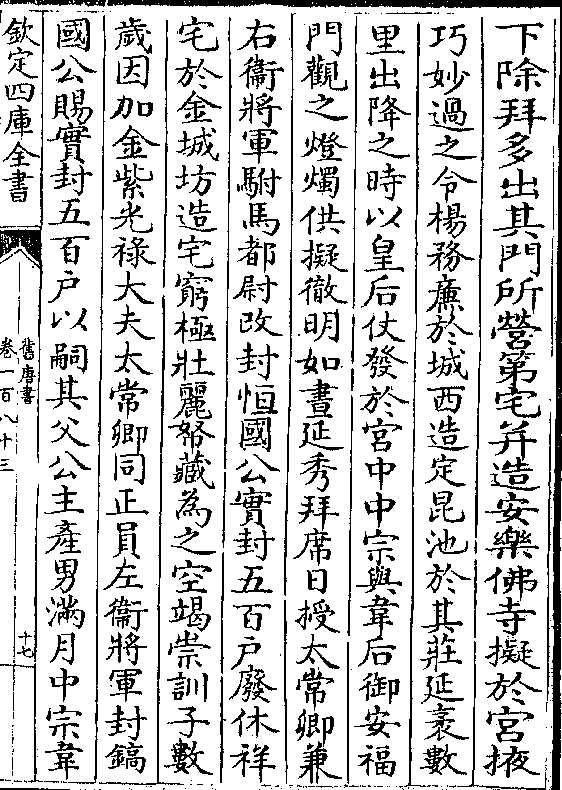 下除拜多出其門所營第宅并造安樂佛寺擬於宮掖
巧妙過之令楊務廉於城西造定昆池於其莊延袤數
里出降之時以皇后仗發於宮中中宗與韋后御安福
門觀之燈燭供擬徹明如晝延秀拜席日授太常卿兼
右衞將軍駙馬都尉改封恒國公實封五百户廢休祥
宅於金城坊造宅窮極壯麗帑藏為之空竭崇訓子數
歲因加金紫光祿大夫太常卿同正員左衞將軍封鎬
國公賜實封五百户以嗣其父公主產男滿月中宗韋
欽定四庫全書
舊唐書
卷一百八十三
十七